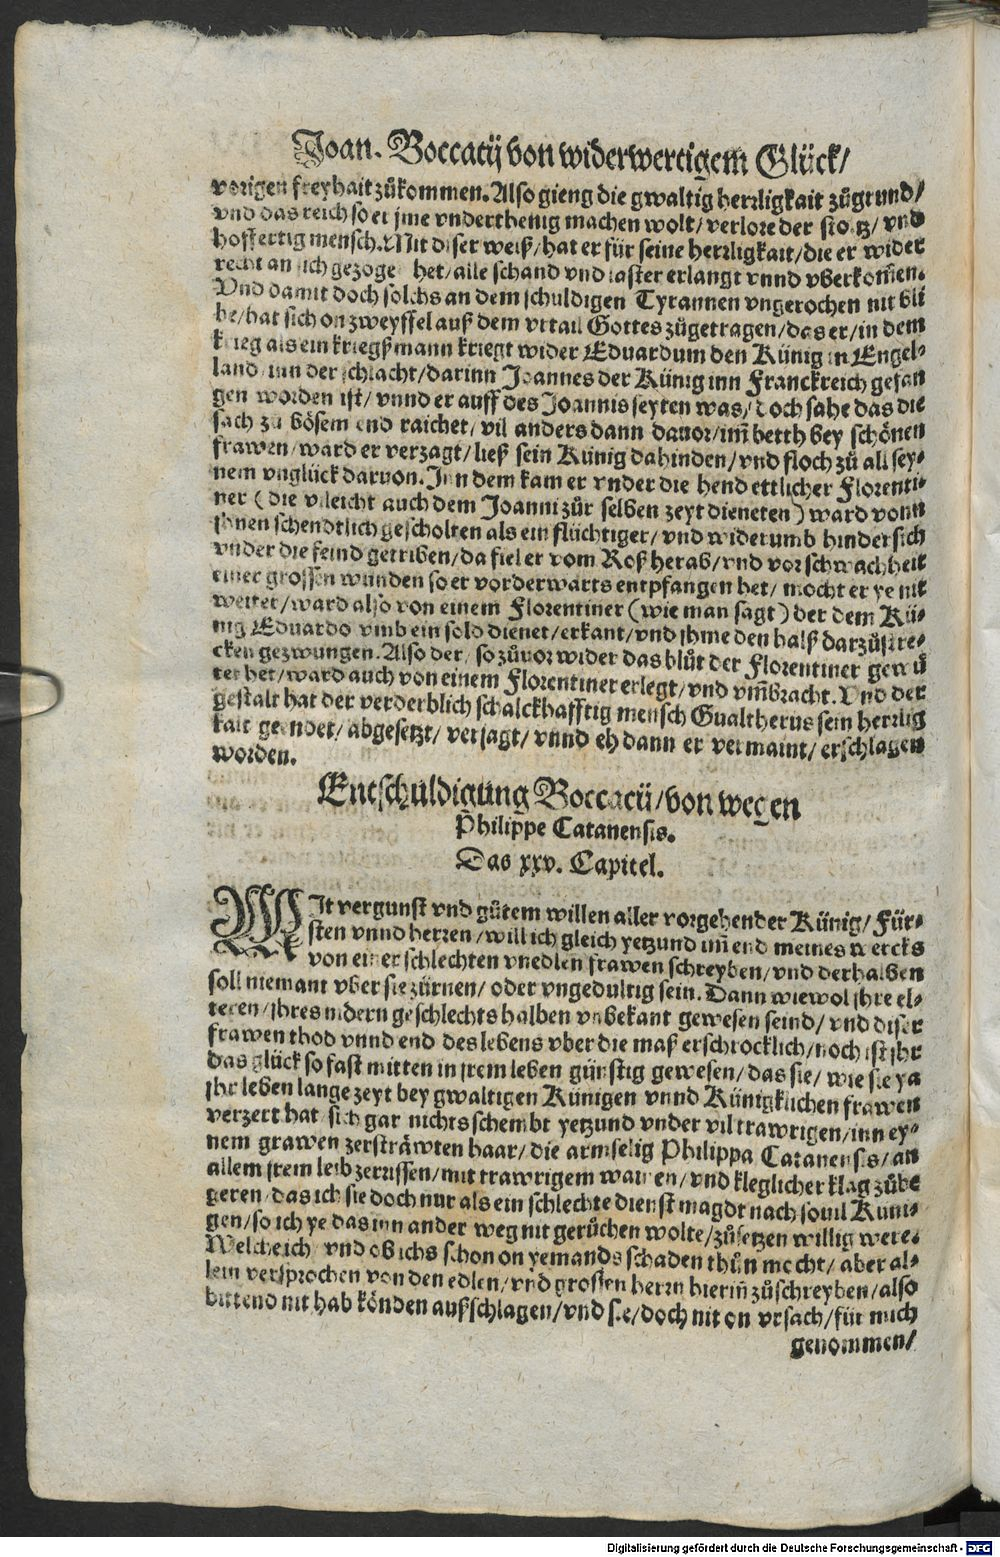 Joan. Boccatij von widerwertigem Glück/
vorigen freyhait zůkommen. Also gieng die gwaltig herrligkait zůgrund/
vnd das reich so er jme vnderthenig machen wolt/ verlore der stoltz/ vnd
hoffertig mensch. Mit diser weiß/ hat er für seine herrligkait/ die er wider
recht an sich gezogen het/ alle schand vnd laster erlangt vnnd vberkom̃en.
Vnd damit doch solchs an dem schuldigen Tyrannen vngerochen nit bli
be/ hat sich on zweyffel auß dem vrtail Gottes zůgetragen/ das er/ in dem
krieg als ein kriegßmann kriegt wider Eduardum den Künig in Engel-
land/ inn der schlacht/ darinn Joannes der Künig inn Franckreich gefan
gen worden ist/ vnnd er auff des Joannis seyten was/ doch sahe das die
sach zu bösem end raichet/ vil anders dann dauor/ im̃ betth bey schönen
frawen/ ward er verzagt/ ließ sein Künig dahinden/ vnd floch zů all sey-
nem vnglück daruon. Inn dem kam er vnder die hend ettlicher Florenti-
ner (die vileicht auch dem Joanni zůr selben zeyt dieneten) ward vonn
jhnen schendtlich gescholten als ein flüchtiger/ vnd widerumb hindersich
vnder die feind getriben/ da fiel er vom Roß herab/ vnd vor schwachheit
einer grossen wunden so er vorderwarts entpfangen het/ mocht er ye nit
weiter/ ward also von einem Florentiner (wie man sagt) der dem Kü-
nig Eduardo vmb ein sold dienet/ erkant/ vnd jhme den halß darzůstre-
cken gezwungen. Also der/ so zůuor wider das blůt der Florentiner gewü
tet het/ ward auch von einem Florentiner erlegt/ vnd vm̃bracht. Vnd der
gestalt hat der verderblich schalckhafftig mensch Gualtherus sein herrlig
kait geendet/ abgesetzt/ veriagt/ vnnd eh dann er vermaint/ erschlagen
worden.
Entschuldigung Boccacij/ von wegen
Philippe Catanensis.
Das xxv. Capitel.
MIt vergunst vnd gůtem willen aller vorgehender Künig/ Für-
sten vnnd herren/ will ich gleich yetzund im̃ end meines wercks
von einer schlechten vnedlen frawen schreyben/ vnd derhalben
soll niemant vber sie zürnen/ oder vngedultig sein. Dann wiewol jhre el-
teren/ jhres nidern geschlechts halben vnbekant gewesen seind/ vnd diser
frawen thod vnnd end des lebens vber die maß erschrocklich/ noch ist jhr
das glück so fast mitten in jrem leben günstig gewesen/ das sie/ wie sie ya
jhr leben lange zeyt bey gwaltigen Künigen vnnd Künigklichen frawen
verzert hat/ sich gar nichts schembt yetzund vnder vil trawrigen/ inn ey-
nem grawen zersträwten haar/ die armselig Philippa Catanensis/ an
allem jrem leib zerrissen/ mit trawrigem wainen/ vnd kleglicher klag zůbe
geren/ das ich sie doch nur als ein schlechte dienstmagdt nach souil Küni-
gen/ so ich ye das inn ander weg nit gerůchen wolte/ zůsetzen willig were.
Welche ich/ vnd ob ichs schon on yemands schaden thůn mecht/ aber al-
lein versprochen von den edlen/ vnd grossen herrn hierin̄ zůschreyben/ also
bittend nit hab könden außschlagen/ vnd sie/ doch nit on vrsach/ für mich
genommen/
Digitalisierung gefördert durch die Deutsche Forschungsgemeinschaft - DFG